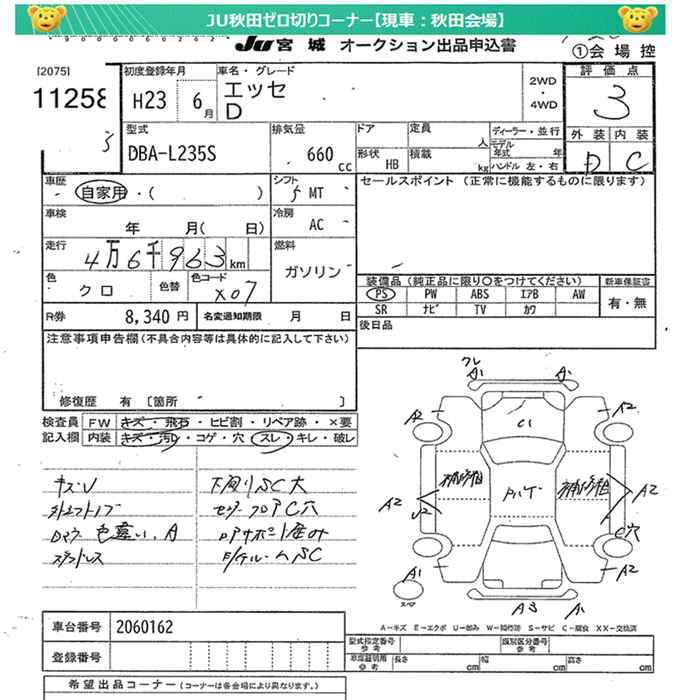 JU秋田ゼロ切りコーナー【現車：秋田会場】
JU 宮城 オークション出品申込書
①会場控
[2075]
11258
初度登録年月
H23 6月
車名・グレード
エッセ
D
2WD
・
4WD
評価点
3
外装 内装
D C
型式
DBA-L235S
排気量
660 cc
ドア
定員 人
ディーラー・並行
モデル年式 年
形状 HB
積載 kg
ハンドル 左・右
車歴
自家用・( )
シフト
5 MT
セールスポイント (正常に機能するものに限ります)
車検
年 月( 日)
冷房
AC
走行
4万6千963 km
燃料
ガソリン
色
クロ
色替
色コード
X07
装備品 (純正品に限り○をつけてください)
新車保証書
PS PW ABS エアB AW
SR ナビ TV カワ
有・無
R券 8,340 円
名変通知期限 月 日
後日品
注意事項申告欄 (不具合内容等は具体的に記入して下さい)
修復歴 有 [箇所 ]
検査員 FW キズ・飛石・ヒビ割・リペア跡・×要
記入欄 内装 キズ・汚レ・コゲ・穴・スレ・キレ・破レ
キズU
下廻りSC大
色違い、A
スタッドレス
フレ
A1 A1
A2 A2
C1
補修箱
補修箱
A2 A2
U2
C穴
A1 A2
スペア
A3 A1
A−キズ E−エクボ U−凹み W−補修跡 S−サビ C−腐食 XX−交換済
車台番号 2060162
登録番号
型式指定番号 参考
類別区分番号 参考
車庫証明用 参考
長さ cm 幅 cm 高さ cm
希望出品コーナー (コーナーは各会場により異なります。)